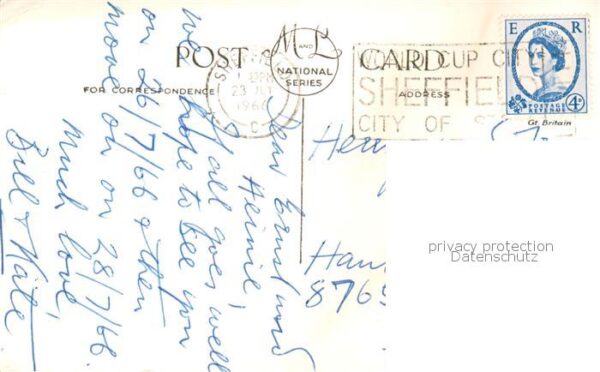 POST CARD
M AND L
NATIONAL
SERIES
FOR CORRESPONDENCE
ADDRESS
23 JLY
1966
C
WORLD CUP CITY
SHEFFIELD
CITY OF
E R
POSTAGE
REVENUE
4D
Gt. Britain
Dear Ernst und
Heinie,
If all goes well
we hope to see you
on 26/7/66 & then
move on on 28/7/66
Much love,
Bill & Kate
privacy protection
Datenschutz